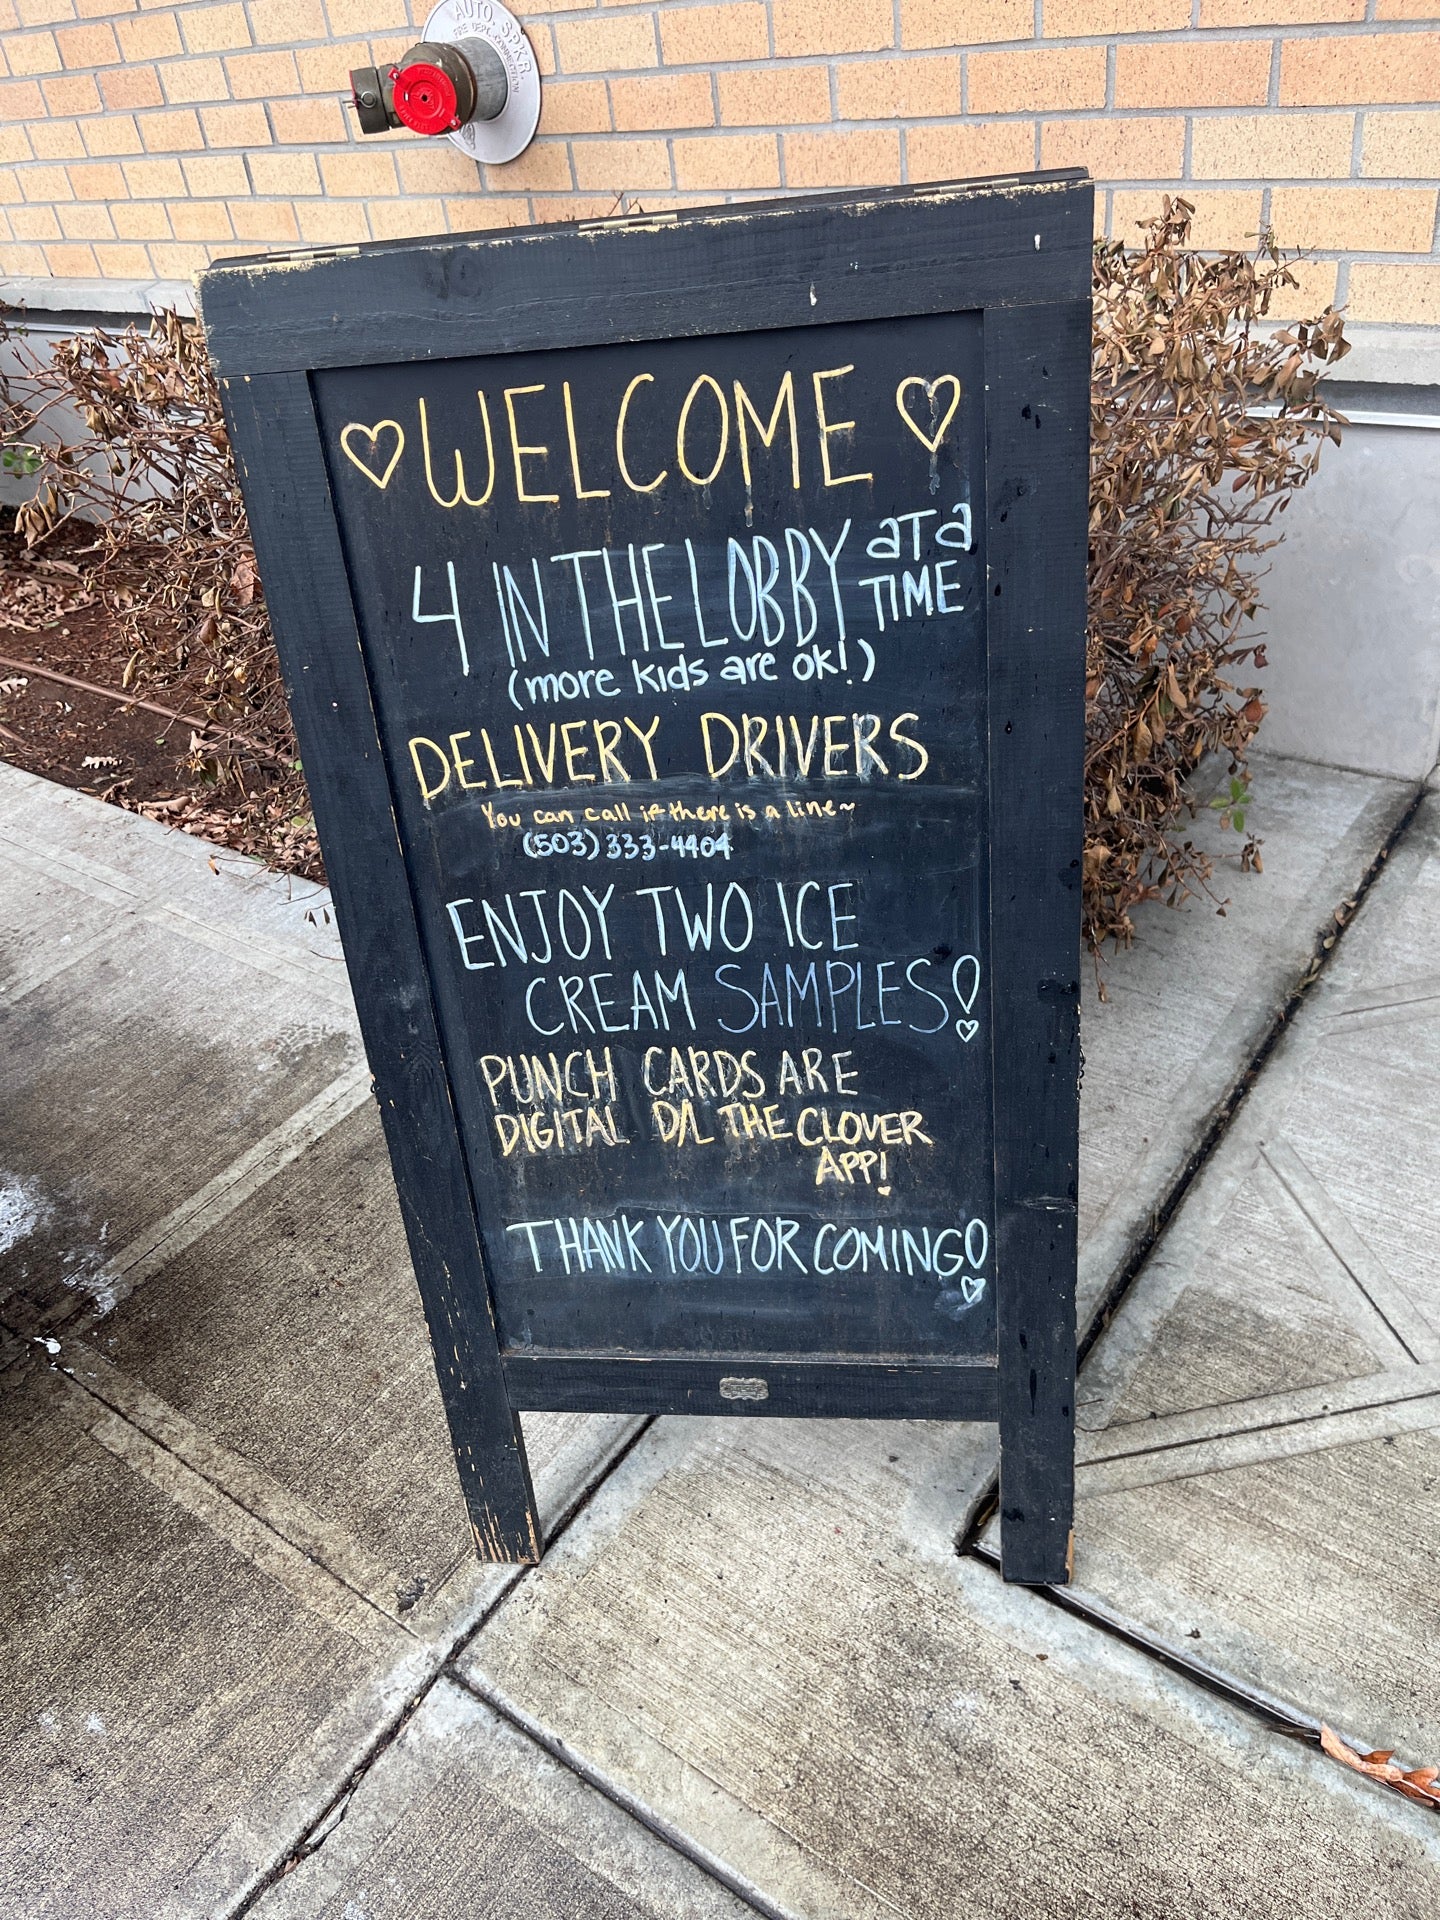 AUTO. SPKR.
FIRE DEPT. CONNECTION
♡ WELCOME ♡
4 IN THE LOBBY aT a
TIME
(more kids are ok!)
DELIVERY DRIVERS
You can call if there is a line~
(503) 333-4404
ENJOY TWO ICE
CREAM SAMPLES!
PUNCH CARDS ARE
DIGITAL D/L THE CLOVER
APP!
THANK YOU FOR COMING!